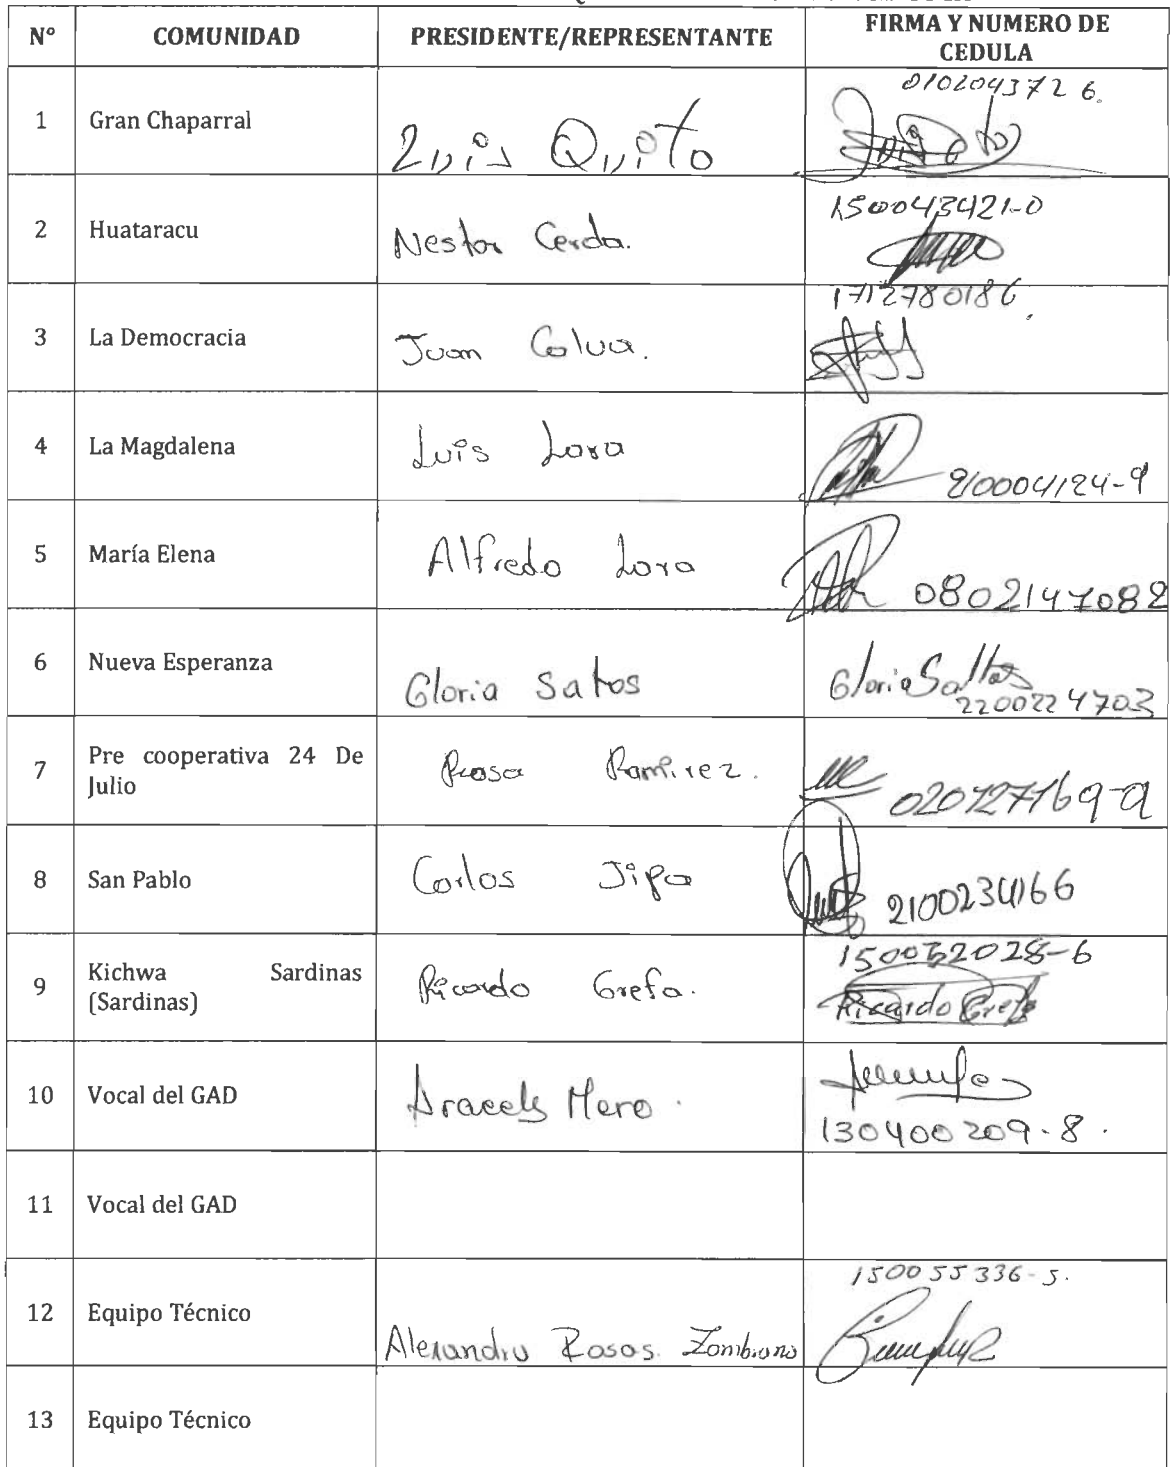 N° COMUNIDAD PRESIDENTE/REPRESENTANTE FIRMA Y NUMERO DE
CEDULA
0102043726.
1 Gran Chaparral Luis Quito
150043421-0
2 Huataracu Nestor Cerda.
1712780186.
3 La Democracia Juan Calva.
4 La Magdalena Luis Lora
210004124-9
5 María Elena Alfredo Lora 0802147082
6 Nueva Esperanza Gloria Saltos Gloria Saltos
2200224703
7 Pre cooperativa 24 De
Julio Rosa Ramirez. 020127169-9
8 San Pablo Carlos Jipa 2100234166
150032028-6
9 Kichwa Sardinas
(Sardinas) Ricardo Grefa. Ricardo Grefa
10 Vocal del GAD Aracely Mero.
130400209-8.
11 Vocal del GAD
150055336-5.
12 Equipo Técnico Alexandra Rosas Zambrano
13 Equipo Técnico